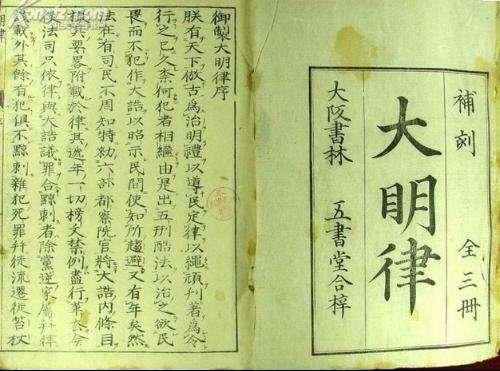 補刻 全三冊
大明律
大阪書林 五書堂合梓
御製大明律序
朕有天下倣古為治明禮以導民定律以繩頑刊著為令
行之已久柰何犯者相繼由是出五刑酷法以治之欲民
畏而不犯作大誥以昭示民間使知所趨避又有年矣然
法在有司民不周知特勑六部都察院官將大誥內條目
撮其要畧附載於律其遞年一切榜文禁例盡行革去今
後法司只依律與大誥議罪合黥刺者除黨逆家屬并律
該載外其餘有犯俱不黥刺雜犯死罪并徒流遷徙笞杖
明律